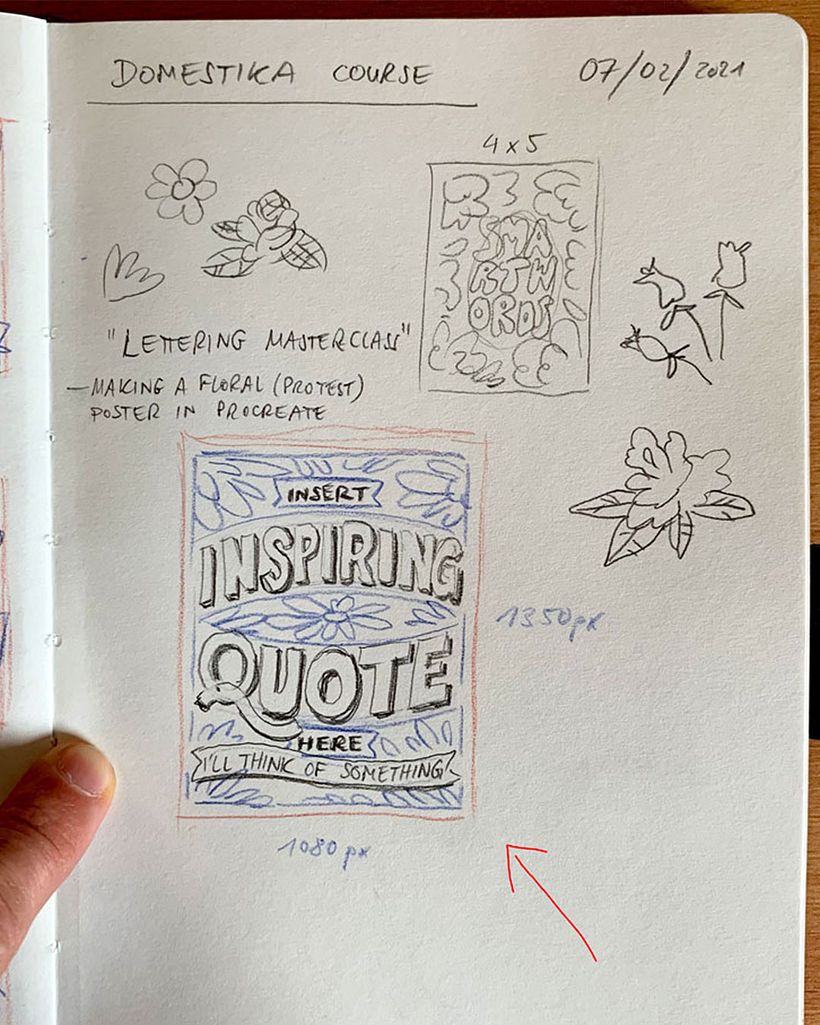 DOMESTIKA COURSE
07/02/2021
4x5
SMA
RTW
ORDS
"LETTERING MASTERCLASS"
—MAKING A FLORAL (PROTEST)
POSTER IN PROCREATE
INSERT
INSPIRING
QUOTE
HERE
I'LL THINK OF SOMETHING
1350px
1080px